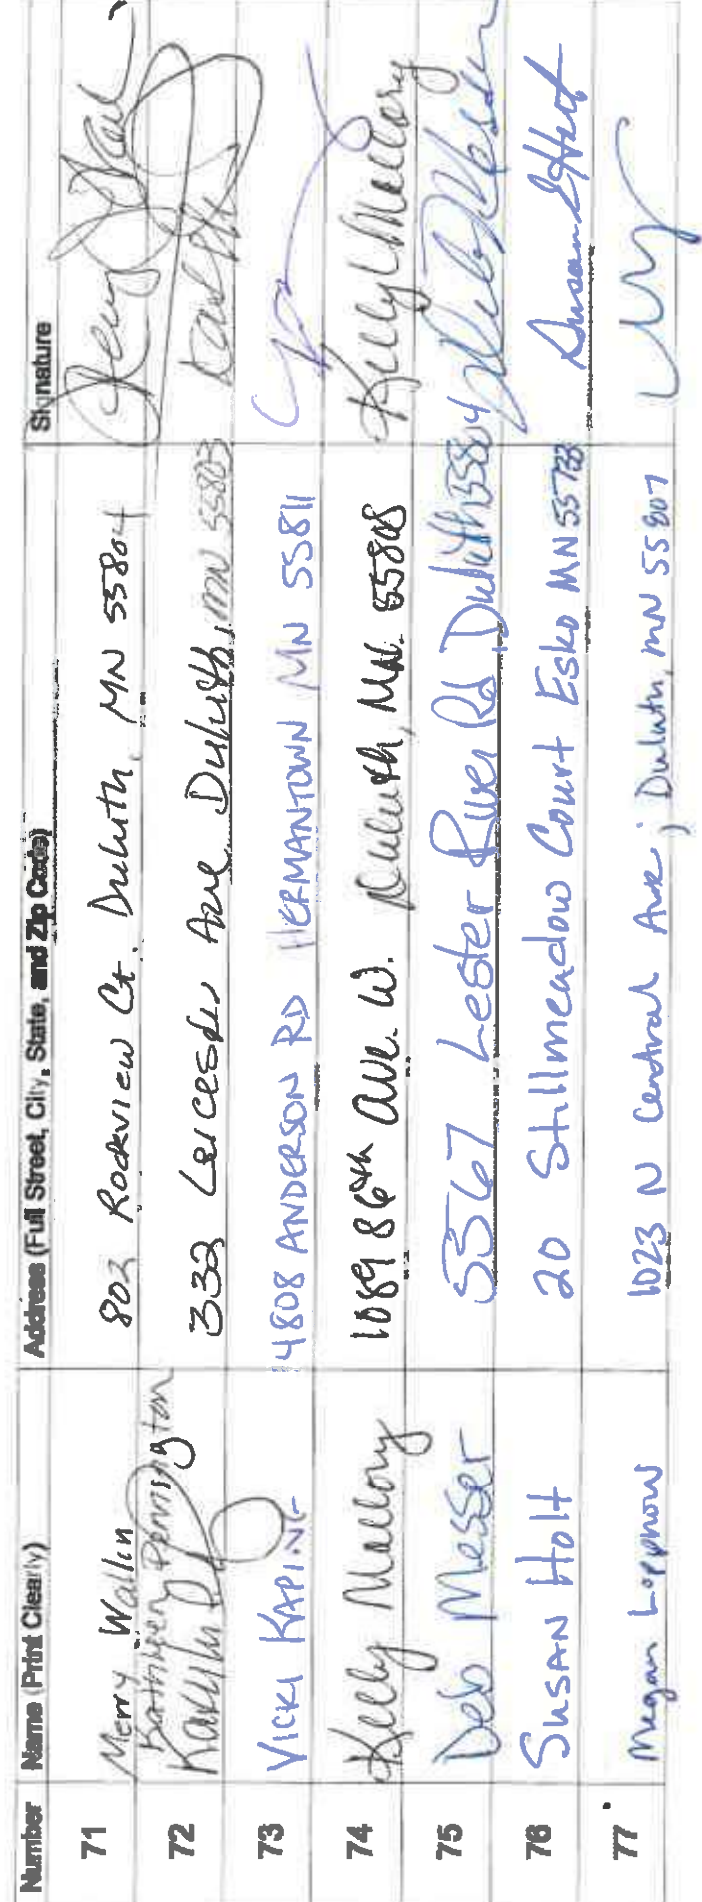 Number Name (Print Clearly) Address (Full Street, City, State, and Zip Code) Signature
71 Merry Wallin 802 Rockview Ct. Duluth, MN 55804
72 Kathleen Pennington 332 Leicester Ave Duluth, MN 55803
73 VICKI KAPING 4808 ANDERSON RD HERMANTOWN MN 55811
74 Kelly Mallory 1089 86th Ave. W. Duluth, MN. 55808 Kelly Mallory
75 Deb Messer 5567 Lester River Rd, Duluth 55804
76 SUSAN Holt 20 Stillmeadow Court Esko MN 55733 Susan Holt
77 Megan Loppnow 1023 N Central Ave; Duluth, MN 55807